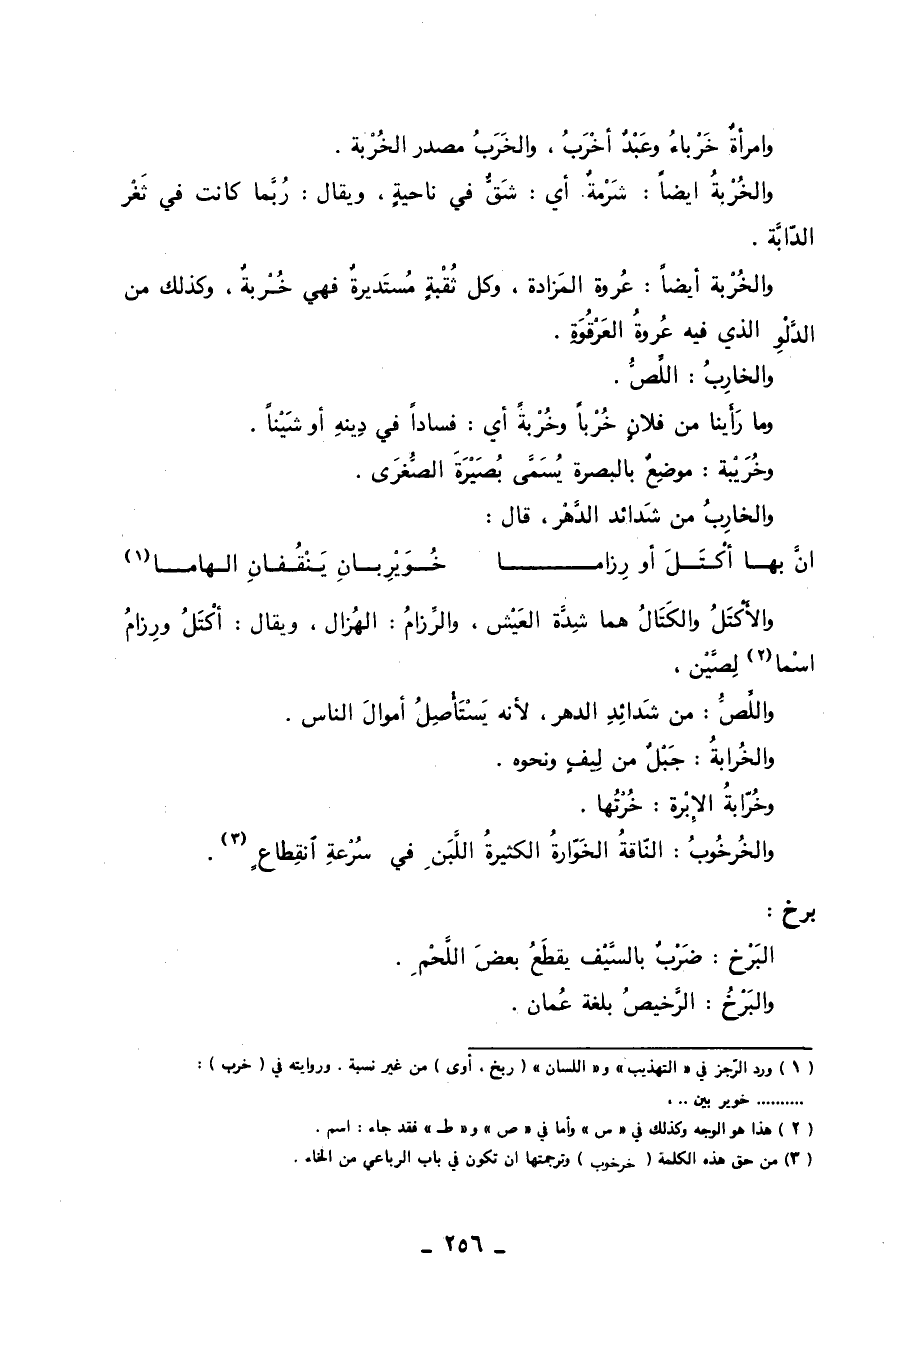 وامرأةٌ خَرْباءُ وعَبْدٌ أخْرَبُ ، والخَرَبُ مصدر الخُرْبة .
والخُرْبةُ ايضاً : شَرْمةٌ أي : شَقٌّ في ناحيةٍ ، ويقال : رُبَّما كانت في ثَغْر
الدّابَّة .
والخُرْبة أيضاً : عُروة المَزادة ، وكل ثُقْبةٍ مُستَديرةٌ فهي خُرْبةٌ ، وكذلك من
الدَّلْوِ الذي فيه عُروةُ العَرْقُوَةِ .
والخارِبُ : اللِّصُّ .
وما رَأَينا من فلانٍ خُرْباً وخُرْبةً أي : فساداً في دِينهِ أو شَيْناً .
وخُرَيْبة : موضِعٌ بالبصرة يُسَمَّى بُصَيْرَةَ الصُّغرَى .
والخارِبُ من شَدائد الدَّهْر ، قال :
انَّ بهـا أكْتَـلَ أو رِزامـا خُـوَيْرِبـانِ يَنْقُفـانِ الهامـا(١)
والأَكْتَلُ والكَتَالُ هما شِدَّة العَيْش ، والرِّزامُ : الهُزال ، ويقال : أكْتَلُ ورِزامُ
اسْما(٢) لِصَّيْن .
واللِّصُّ : من شَدائِدِ الدهر ، لأنه يَسْتَأْصِلُ أموالَ الناس .
والخُرابةُ : حَبْلٌ من لِيفٍ ونحوه .
وخُرّابةُ الإبْرة : خُرْتُها .
والخُرخُوبُ : النّاقةُ الخَوّارةُ الكثيرةُ اللَّبَنِ في سُرْعةِ ٱنقِطاعٍ (٣) .
برخ :
البَرْخ : ضَرْبٌ بالسَّيْف يقطَعُ بعضَ اللَّحْمِ .
والبَرْخُ : الرَّخيصُ بلغة عُمان .
( ١ ) ورد الرّجز في « التهذيب » و« اللسان » ( ربخ ، أوى ) من غير نسبة . وروايته في ( خرب ) :
.......... خوير بين .. ،
( ٢ ) هذا هو الوجه وكذلك في « س » وأما في « ص » و« ط » فقد جاء : اسم .
( ٣ ) من حق هذه الكلمة ( خرخوب ) وترجمتها ان تكون في باب الرباعي من الخاء .
ـ ٢٥٦ ـ